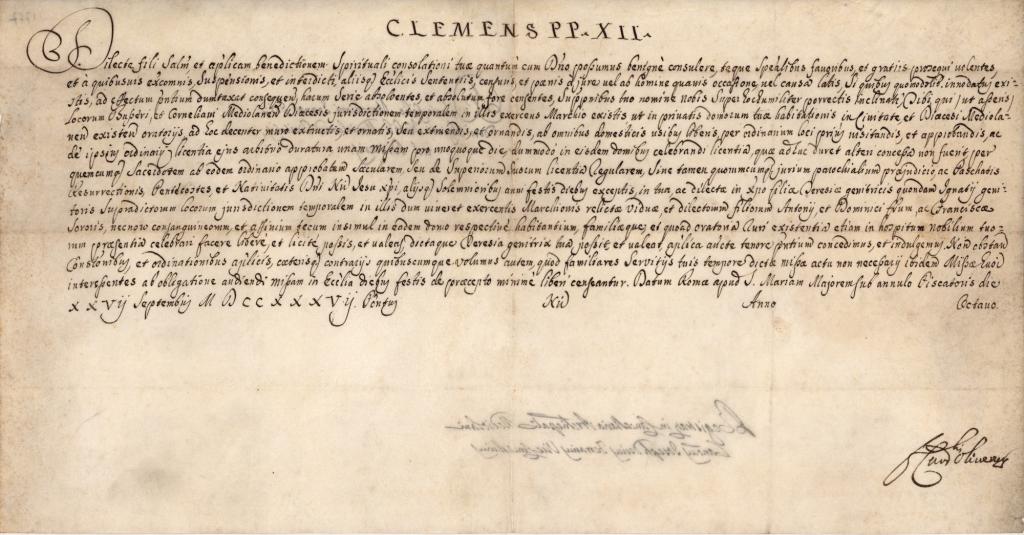 CLEMENS PP. XII.
Dilecte fili Salm et aplicam benedictionem. Spirituali consolationi tuæ quantum cum Dno possumus benigne consulere, teque Spêalibus favoribus, et gratiis prosequi volentes
et à quibusuis excomnis, Suspensionis, et interdicti, aliisq Ecclicis Sententiis, censuris, et poenis à jure, uel ab homine quauis occasione, uel causa latis, Si quibus quomodolt innodatus exi-
stis, ad effectum pntium dumtaxat consequen, harum Serie absoluentes, et absolutum fore censentes, Supplnibus tuo nomine nobis Super hoc humiliter porrectis inclinati; Tibi, qui, ut asseris,
locorum et Corneliani Mediolanen Diæcesis jurisdictionem temporalem in illis exercens Marchio existis ut in priuatis domorum tuæ habitationis in Ciuitate et Diæcesi Mediola-
nen existen oratorijs, ad hoc decenter muro extructis et ornatis, Seu extruendis, et ornandis, ab omnibus domesticis usibus liberis, per ordinarium loci prius uisitandis, et approbandis, ac
de ipsius ordinarij licentia ejus arbitrio duratura unam Missam pro unoquoque die, dummodo in eisdem domibus celebrandi licentia, quæ adhuc duret alteri concessa non fuerit, per
quemcumq Sacerdotem ab eodem ordinario approbatum Sæcularem, seu de Superiorum Suorum licentia Regularem, Sine tamen quorumcumq jurium parochialium præjudicio, ac Paschatis
Resurrectionis, Pentecostes, et Natiuitatis Dni Nri Jesu Xpi, alijsq Solemnioribus anni festis diebus exceptis, in tua, ac dilectæ in xpo filiæ Teresiæ genitricis quondam Ignatij geni-
toris Supradictorum locorum jurisdictionem temporalem in illis dum uiueret exercentis Marchionis relictæ Viduæ et dilectorum filiorum Antonij et Dominici frum, ac Franciscæ
Sororis, necnon consanguineorum, et affinium tecum insimul in eadem domo respectiue habitantium, familiæque, et quoad oratoria Ruri existentia etiam in hospitum nobilium tuo-
rum præsentia celebrari facere libere, et licite possis, et ualeas, dictaque Teresia genitrix tua possit, et ualeat, aplica aucte tenore pntium concedimus, et indulgemus. Non obstan
Constionibus, et ordinationibus aplicis, cæterisq contrarijs quibuscumque. Volumus autem, quod familiares Seruitijs tuis tempore dictæ missæ actu non necessarij ibidem Missæ huic
interessentes ab obligatione audiendi missam in Ecclia diebus festis de præcepto minime liberi censeantur. Datum Romæ apud S. Mariam Majorem sub annulo Piscatoris die
XXVij Septembris MDCCXXXVij. Pontus Nri Anno Octauo.